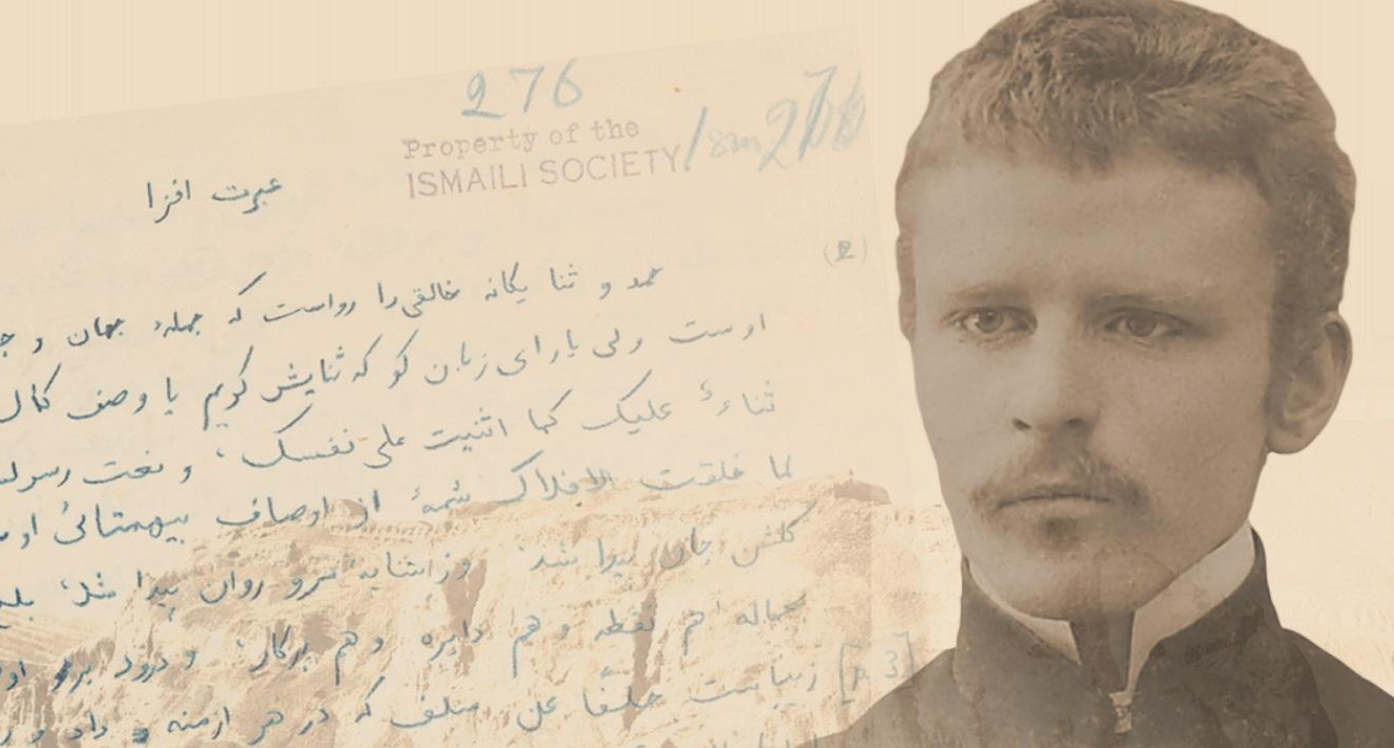 276
Property of the
ISMAILI SOCIETY
Ism 276
عبرت افزا
حمد و ثنا یگانه خالقی را رواست که جملهٔ جهان و
اوست ولی یارای زبان کو که ثنایش گویم یا وصف کمال
ثناءً علیک کما اثنیت علی نفسک، و نعت
لما خلقت الافلاک شمهٔ از اوصاف بیهمتائی
گلشن جان پیدا شد، وز سرو روان پیدا شد،
هم نقطه و هم دایره و هم پرکار، و درود بر
[p 3] زیباست که در هر ازمنه و